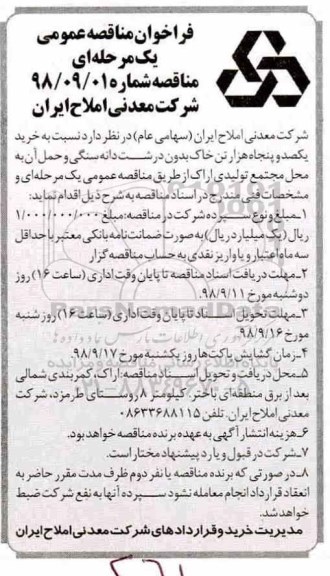 فراخوان مناقصه عمومی
یک مرحله‌ای
مناقصه شماره ۹۸/۰۹/۰۱
شرکت معدنی املاح ایران
شرکت معدنی املاح ایران (سهامی عام) در نظر دارد نسبت به خرید
یکصد و پنجاه هزار تن خاک بدون درشت دانه سنگی و حمل آن به
محل مجتمع تولیدی اراک از طریق مناقصه عمومی یک مرحله‌ای و
مشخصات فنی مندرج در اسناد مناقصه به شرح ذیل اقدام نماید:
۱ـ مبلغ و نوع سپرده شرکت در مناقصه: مبلغ ۱/۰۰۰/۰۰۰/۰۰۰
ریال (یک میلیارد ریال) به صورت ضمانت نامه بانکی معتبر با حداقل
سه ماه اعتبار و یا واریز نقدی به حساب مناقصه گزار
۲ـ مهلت دریافت اسناد مناقصه تا پایان وقت اداری (ساعت ۱۶) روز
دوشنبه مورخ ۹۸/۹/۱۱.
۳ـ مهلت تحویل اسناد تا پایان وقت اداری (ساعت ۱۶) روز شنبه
مورخ ۹۸/۹/۱۶
۴ـ زمان گشایش پاکت‌ها روز یکشنبه مورخ ۹۸/۹/۱۷.
۵ـ محل دریافت و تحویل اسناد مناقصه: اراک، کمربندی شمالی
بعد از برق منطقه‌ای باختر، کیلومتر ۸ روستای طرمزد، شرکت
معدنی املاح ایران. تلفن ۰۸۶۳۳۶۸۸۱۱۵
۶ـ هزینه انتشار آگهی به عهده برنده مناقصه خواهد بود.
۷ـ شرکت در قبول و یا رد پیشنهاد مختار است.
۸ـ در صورتی که برنده مناقصه یا نفر دوم ظرف مدت مقرر حاضر به
انعقاد قرارداد انجام معامله نشود سپرده آنها به نفع شرکت ضبط
خواهد شد.
مدیریت خرید و قراردادهای شرکت معدنی املاح ایران